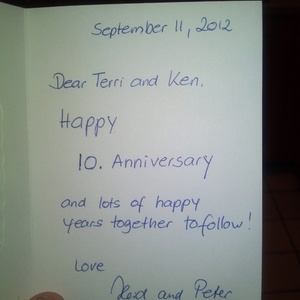 September 11, 2012
Dear Terri and Ken.
Happy
10. Anniversary
and lots of happy
years together to follow!
Love
and Peter